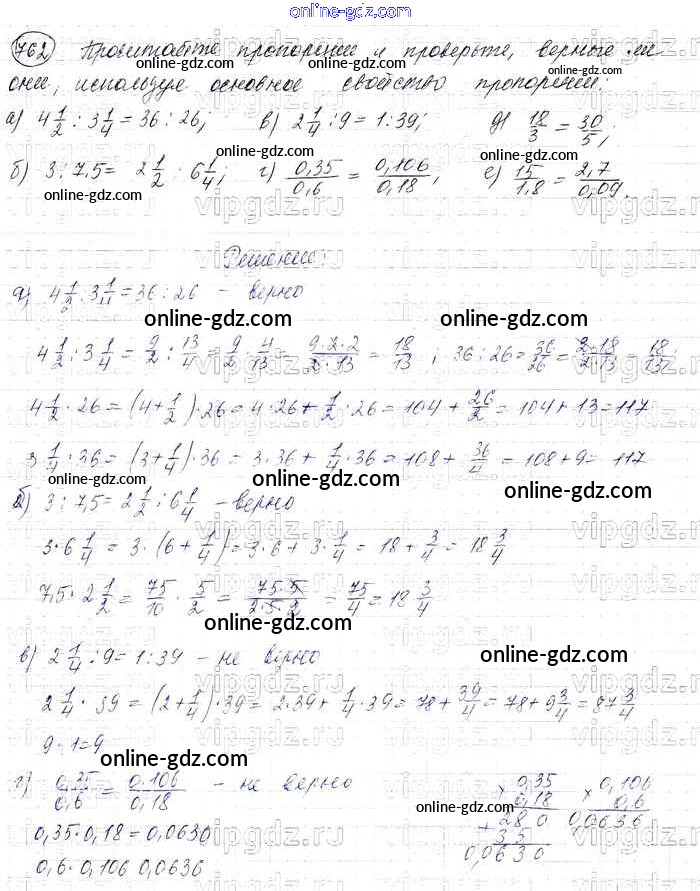 online-gdz.com
762 Прочитайте пропорции и проверьте, верные ли
они, используя основное свойство пропорции:
online-gdz.com
а) 4 1/2 : 3 1/4 = 36 : 26; в) 2 1/4 : 9 = 1 : 39; д) 18/3 = 30/5;
online-gdz.com online-gdz.com
б) 3 : 7,5 = 2 1/2 : 6 1/4; г) 0,35/0,6 = 0,106/0,18; е) 15/1,8 = 2,7/0,09.
online-gdz.com online-gdz.com online-gdz.com
Решение:
а) 4 1/2 : 3 1/4 = 36 : 26 – верно
online-gdz.com online-gdz.com
4 1/2 : 3 1/4 = 9/2 : 13/4 = 9/2 · 4/13 = 9·2·2/2·13 = 18/13; 36 : 26 = 36/26 = 2·18/2·13 = 18/13
online-gdz.com
4 1/2 · 26 = (4 + 1/2) · 26 = 4 · 26 + 1/2 · 26 = 104 + 26/2 = 104 + 13 = 117
3 1/4 · 36 = (3 + 1/4) · 36 = 3 · 36 + 1/4 · 36 = 108 + 36/4 = 108 + 9 = 117
online-gdz.com online-gdz.com online-gdz.com
б) 3 : 7,5 = 2 1/2 : 6 1/4 – верно
3 · 6 1/4 = 3 · (6 + 1/4) = 3 · 6 + 3 · 1/4 = 18 + 3/4 = 18 3/4
7,5 · 2 1/2 = 75/10 · 5/2 = 75·5/2·5·2 = 75/4 = 18 3/4
online-gdz.com
в) 2 1/4 : 9 = 1 : 39 – не верно
online-gdz.com
2 1/4 · 39 = (2 + 1/4) · 39 = 2 · 39 + 1/4 · 39 = 78 + 39/4 = 78 + 9 3/4 = 87 3/4
9 · 1 = 9
online-gdz.com online-gdz.com
г) 0,35/0,6 = 0,106/0,18 – не верно
0,35 · 0,18 = 0,0630
0,6 · 0,106 0,0636
× 0,35
0,18
280
+ 35
0,0630
× 0,106
0,6
0,0636
online-gdz.com
online-gdz.com
vipgdz.ru